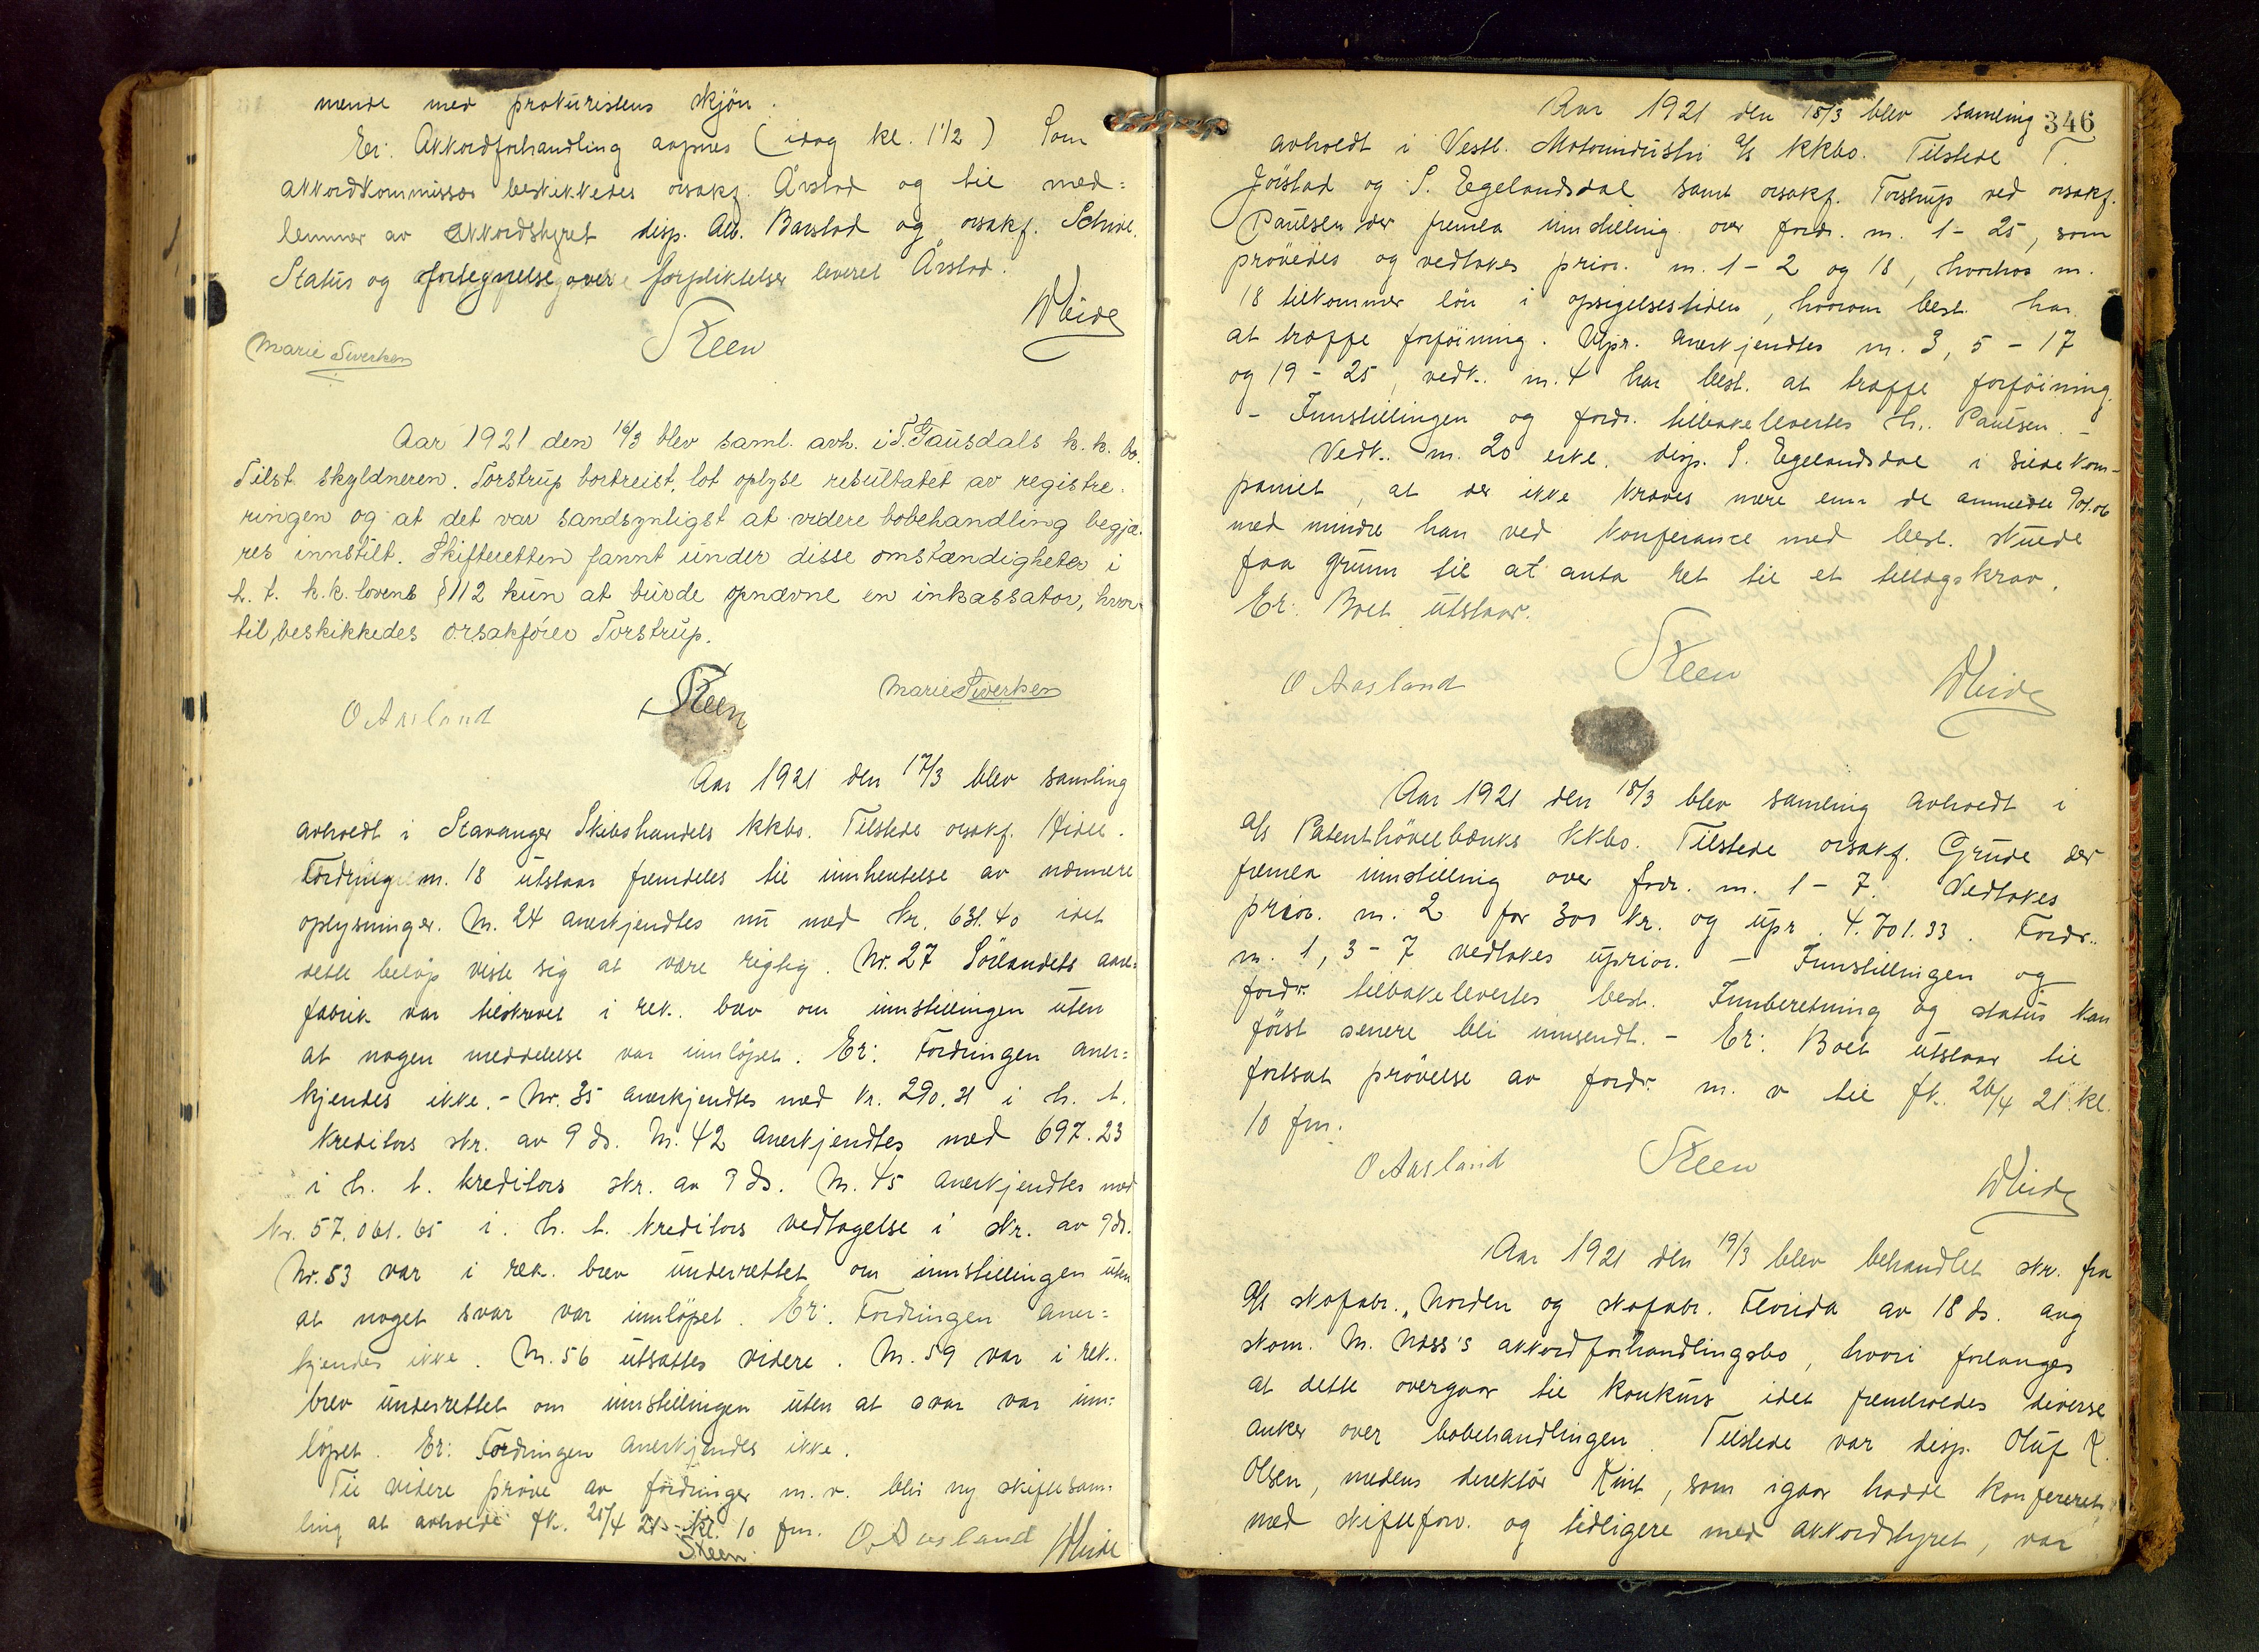 mende med prokuristens skjön.
Er: Akkordforhandling aapnes (idag kl. 1 1/2) Som
akkordkommissær beskikkedes orsakf. Årstad og til med=
lemmer av akkordstyret disp. Alb. Barstad og orsakf. Schive.
Status og fortegnelse over forpliktelser leveret Årstad.
Marie Siverken
Steen
W Eide
Aar 1921 den 16/3 blev saml. avh. i T. Gausdals k.k.bo.
Tilst. skyldneren. Torstrup bortreist, lot oplyse resultatet av registre-
ringen og at det var sandsynligst at videre bobehandling begjæ-
res innstilt. Skifteretten fannt under disse omstændigheter i
h. t. k.k. lovens § 112 kun at burde opnævne en inkassator, hvor-
til beskikkedes orsakfører Torstrup.
O Aasland
Steen
Marie Siverken
Aar 1921 den 17/3 blev samling
avholdt i Stavanger Skibshandels kkbo. Tilstede orsakf. Hidle.
Fordring nr. 18 utstaar fremdeles til innhentelse av nærmere
oplysninger. Nr. 24 anerkjendtes nu med kr. 631.40 idet
dette beløp viste sig at være rigtig. Nr. 27 Sörlandets aare-
fabrik var tilskrevet i rek. brev om innstillingen uten
at nogen meddelelse var innløpet. Er: Fordringen aner=
kjendes ikke. - Nr. 35 anerkjendtes med kr. 290.31 i h. t.
kreditors skr. av 9 ds. Nr. 42 anerkjendtes med 697.23
i h. t. kreditors skr. av 9 ds. Nr. 45 anerkjendtes med
kr. 57.061.65 i h. t. kreditors vedtagelse i skr. av 9 ds.
Nr. 53 var i rek. brev underrettet om innstillingen uten
at noget svar var innløpet. Er: Fordringen aner=
kjendes ikke. Nr. 56 utsattes videre. Nr. 59 var i rek.
brev underrettet om innstillingen uten at svar var inn=
løpet. Er: Fordringen anerkjendes ikke.
Til videre prøve av fordringer m. v. blir ny skiftesam-
ling at avholde fk. 25/4 21 - kl. 10 fm.
Steen
O Aasland
W Eide
346
Aar 1921 den 18/3 blev samling
avholdt i Vestl. Motorindustri A/S kkbo. Tilstede T.
Jörstad og S. Egelandsdal samt orsakf. Torstrup ved orsakf.
Paulsen der fremla innstilling over fordr. nr. 1 - 25, som
prövedes og vedtokes prior. nr. 1 - 2 og 18, hvorhos nr.
18 tilkommer lön i opsigelsestiden, hvorom best. har
at træffe forföining. Upr. anerkjendtes nr. 3, 5 - 17
og 19 - 25, vedk. nr. 4 har best. at træffe forföining.
- Innstillingen og fordr. tilbakelevertes hr. Paulsen. -
Vedk. nr. 20 erkl. disp. S. Egelandsdal i sildekom-
paniet, at der ikke kræves mere enn de anmeldte 901.06
med mindre han ved konferance med best. skulde
faa grunn til at anta ret til et tillægskrav.
Er: Boet utstaar.
O Aasland
Steen
W Eide
Aar 1921 den 18/3 blev samling avholdt i
A/S Patenthövelbænks kkbo. Tilstede orsakf. Grude der
fremla innstilling over fodr. nr. 1 - 7. Vedtokes
prior. nr. 2 for 300 kr. og upr. 4.701.33. Fordr.
nr. 1, 3 - 7 vedtokes uprior. - Innstillingen og
fordr. tilbakelevertes best. Innberetning og status kan
först senere bli innsendt. - Er: Boet utstaar til
fortsat prövelse av fordr. m. v til fk. 26/4 21. kl.
10 fm.
O Aasland
Steen
W Eide
Aar 1921 den 19/3 blev behandlet skr. fra
A/S skofabr. "Norden og skofabr. Florida av 18 ds. ang
skom. M. Næss's akkordforhandlingsbo, hvori forlanges
at dette overgaar til konkurs idet fremholdes diverse
anker over bobehandlingen. Tilstede var disp. Oluf K.
Olsen, medens direktör Kint, som igaar hadde konfereret
med skifteforv. og tidligere med akkordstyret, var